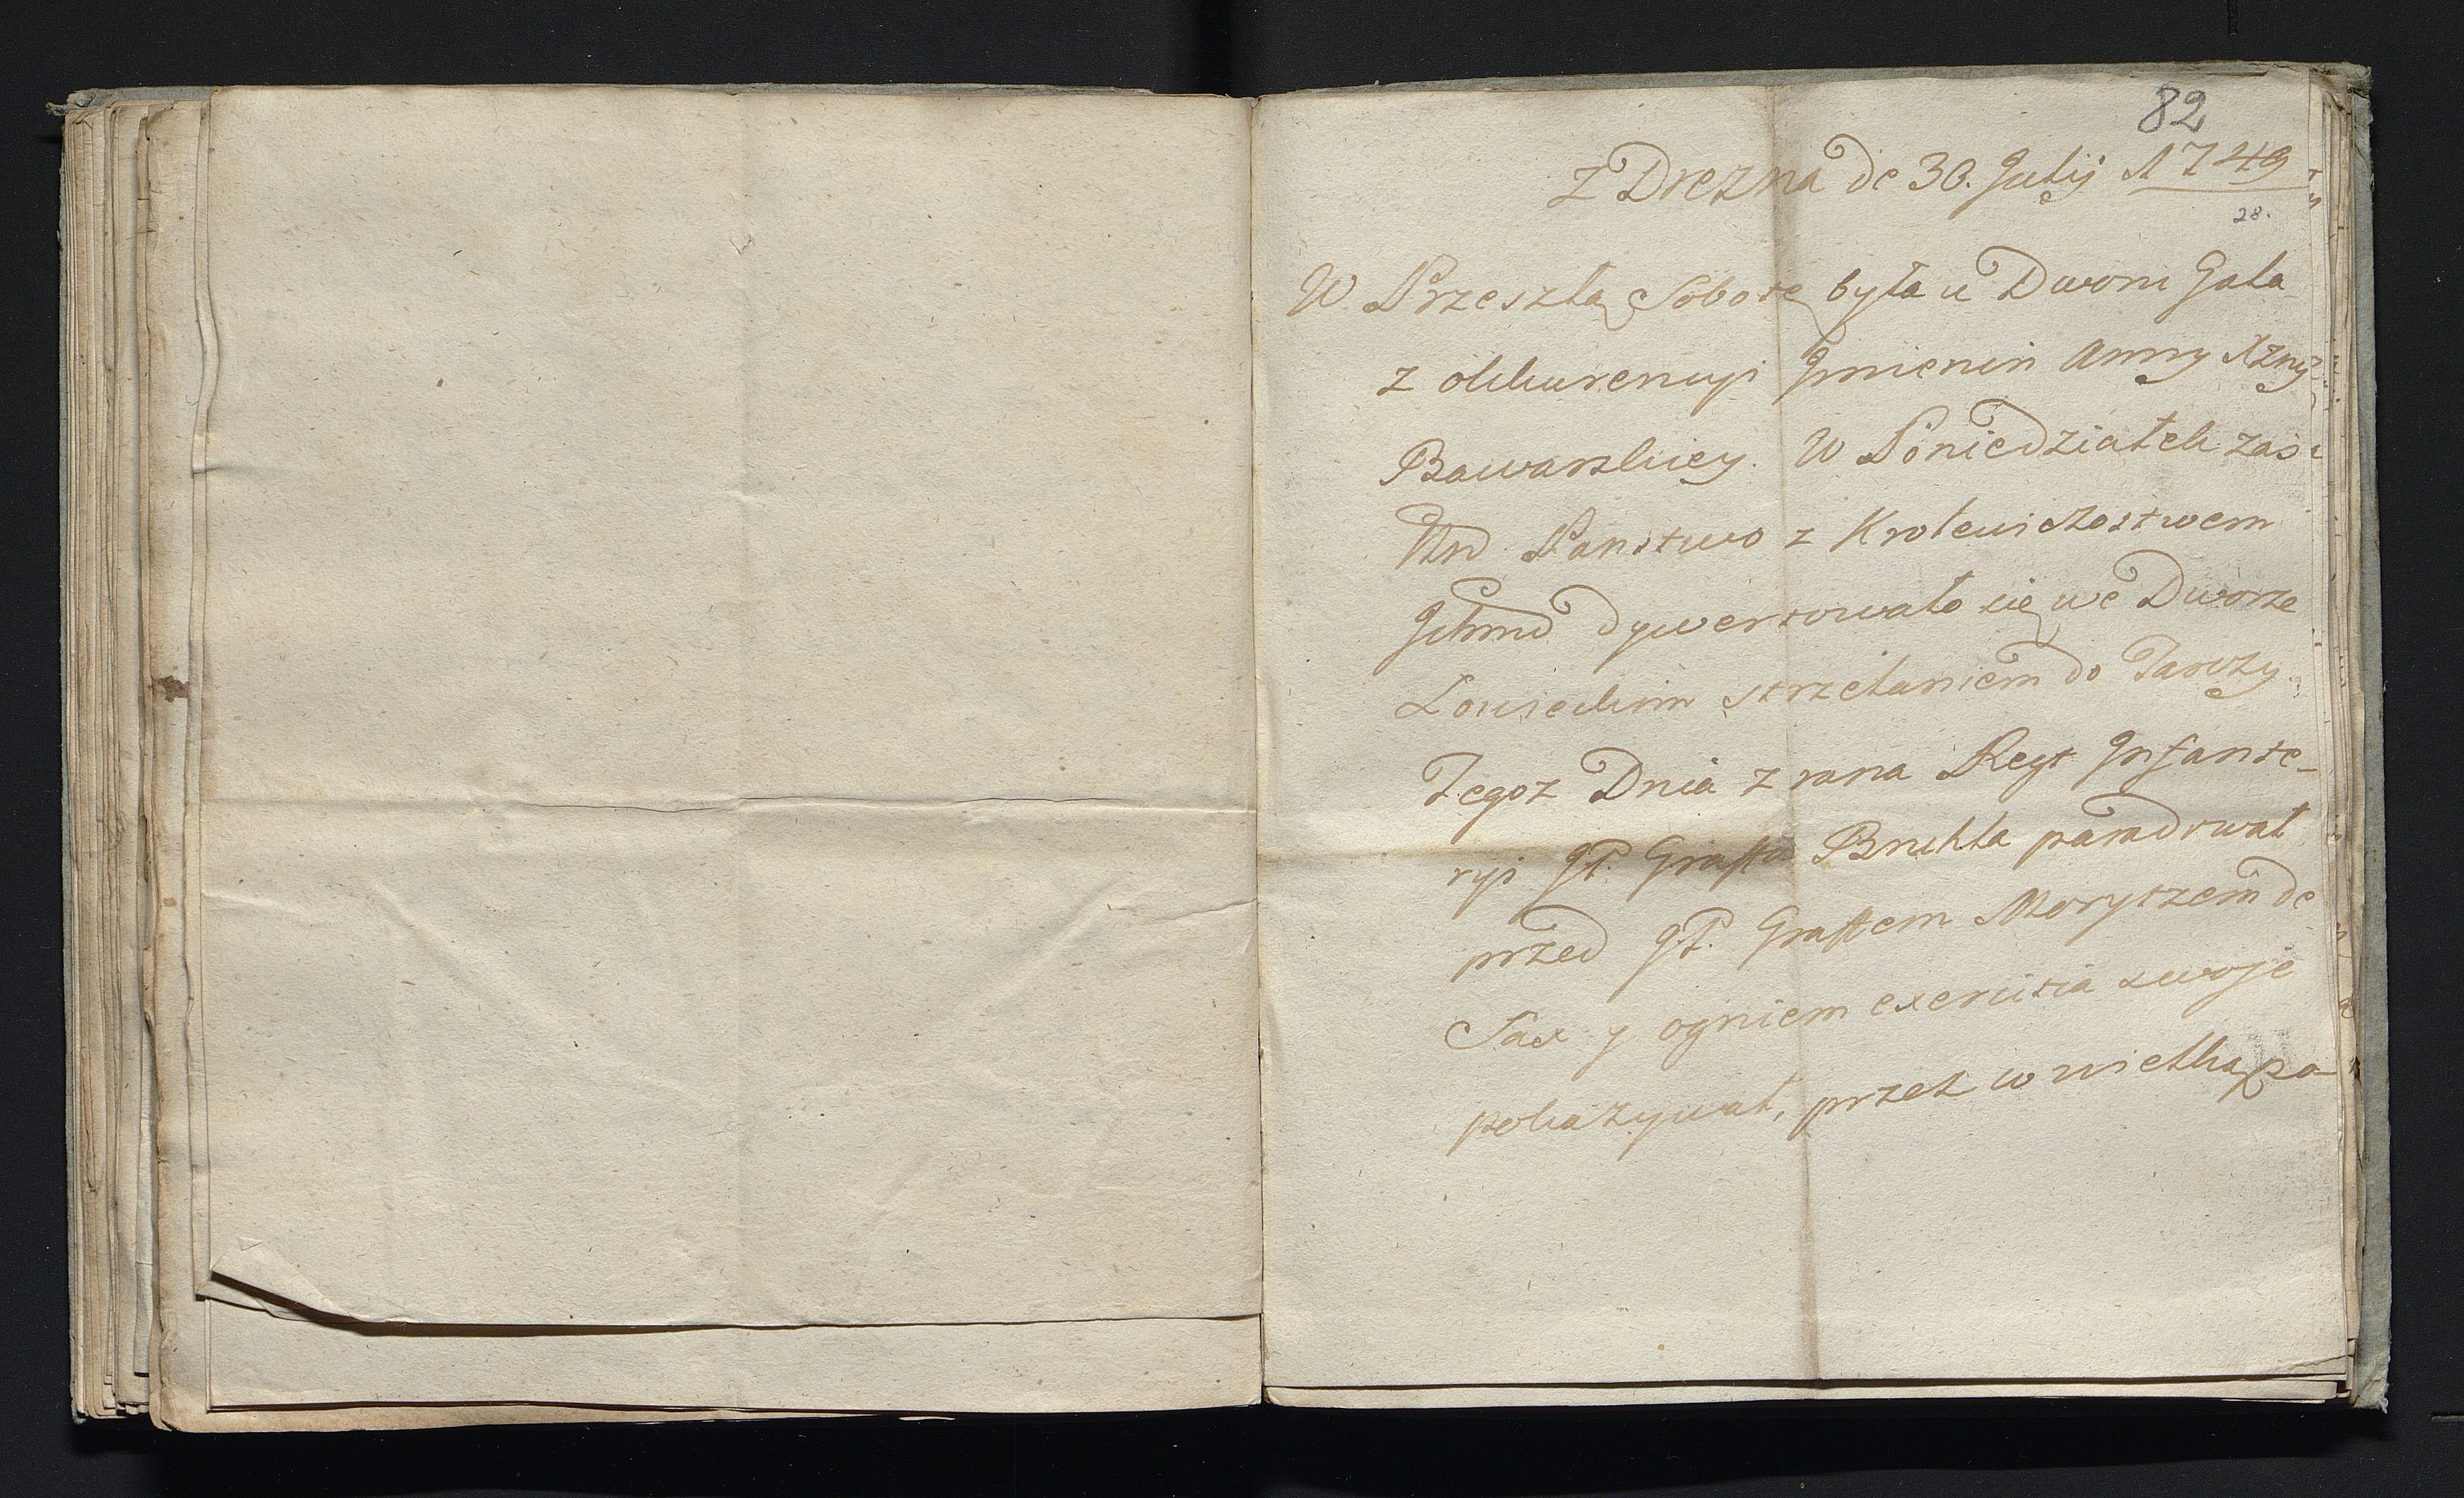 82
Z Drezna de 30. Julij 1749
28.
W Przeszłą Sobotę była u Dworu Gala
z okkurencyi Jmienin Anny Xzny
Bawarskiey. W Poniedziałek zas
Państwo z Krolewiczostwem
Jchmd dywertowało się we Dworze
Łowieckim strzelaniem do Tarczy.
Tegoz Dnia z rana Regt Jnfante-
ryi JP. Graffa Bruhla paradował
przed JP. Graffem Morytzem de
Sax y ogniem exercitia swoje
pokazywał, przez w wielką pa-